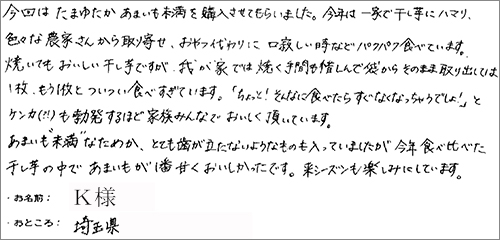 今回は たまゆたか あまいも未満を購入させてもらいました。今年は一家で干し芋にハマり、
色々な農家さんから取り寄せ、おやつ代わりに口寂しい時などパクパク食べています。
焼いてもおいしい干し芋ですが、我が家では焼く手間も惜しんで袋からそのまま取り出しては
1枚、もう1枚とついつい食べすぎています。「ちょっと!そんなに食べたらすぐなくなっちゃうでしょ!」と
ケンカ(?!)も勃発するほど家族みんなでおいしく頂いています。
あまいも"未満"なためか、とても歯が立たないようなものも入っていましたが今年食べ比べた
干し芋の中であまいもが1番甘くおいしかったです。来シーズンも楽しみにしています。
・お名前: K様
・おところ: 埼玉県